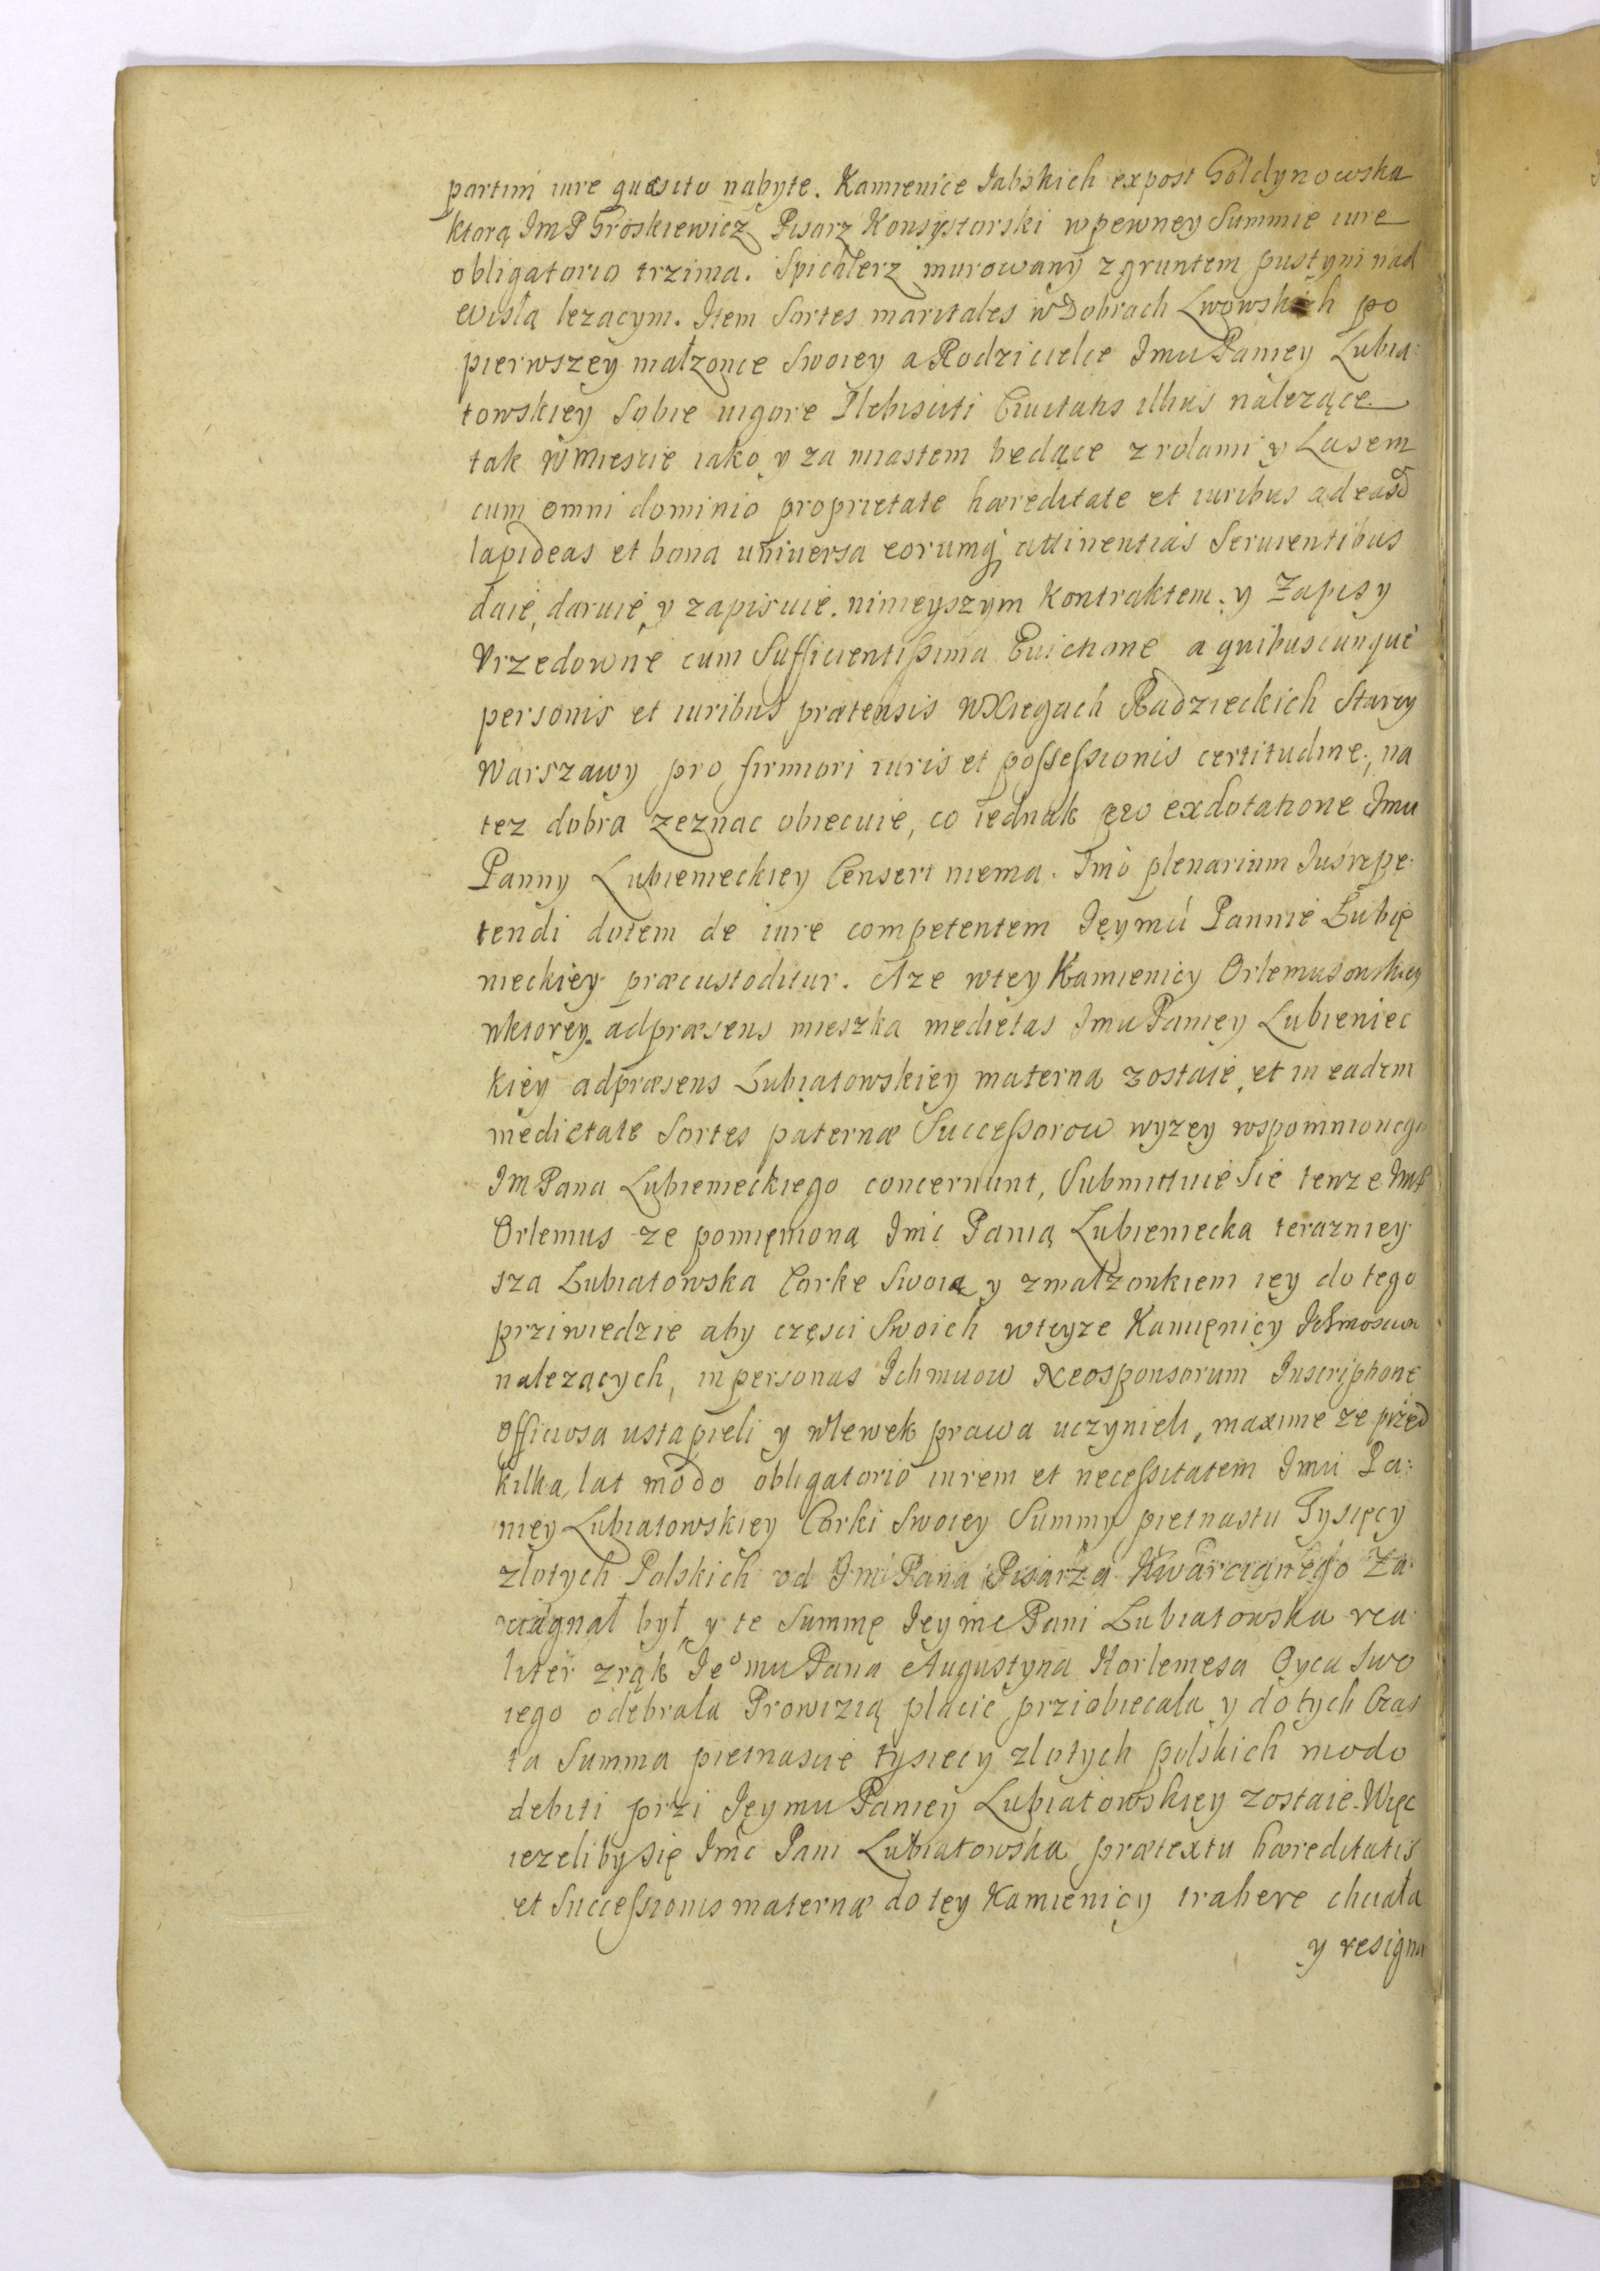 partim iure quæsito nabyte. Kamienice Jabskich expost Goldynowska
ktorą Jm P Groskiewicz Pisarz Konsystorski w pewney Summie iure
obligatorio trzima. Spichlerz murowany z gruntem pustym nad
Wisłą lezacym. Item Sortes maritales w Dobrach Lwowskich po
pierwszey małzonce Swoiey a Rodzicielce Jmu Paniey Lubia:
towskiey Sobie uigore Plebisciti Ciuitatis illius nalezące
tak w Miescie iako y za miastem będące z rolami y Lasem
cum omni dominio proprietate hæreditate et iuribus ad easd
lapideas et bona uniuersa eorumq attinentias Seruientibus
daie, daruie y zapisuie. ninieyszym Kontraktem. y Zapisy
Vrzedowne cum Sufficientissima Euictione a quibuscunque
personis et iuribus prætensis w Xięgach Radzieckich Starey
Warszawy pro firmiori iuris et possessionis certitudine, na
tez dobra zeznac obiecuie, co iednak pro exdotatione Jmu
Panny Lubienieckiey Censeri niema. Imo plenarium Ius repe:
tendi dotem de iure competentem Jeymu Pannie Lubie
nieckiey præcustoditur. Aze w tey Kamienicy Orlemusowskiey
w ktorey adpræsens mieszka medietas Jmu Paniey Lubieniec
kiey adpræsens Lubiatowskiey materna zostaie, et in eadem
medietate Sortes paternæ Successorow wyzey wspomnionego
Jm Pana Lubienieckiego concernunt, Submittuie Sie tenze JmP
Orlemus ze pomienioną Jmc Panią Lubieniecka teraznìey
sza Lubiatowska Corke Swoią y z małzonkiem iey do tego
przywiedzie aby częsci Swoich w teyze Kamięnicy Ichmosciom
nalezących, in personas Ichmciow Neosponsorum Inscriptione
officiosa ustąpieli y wlewek prawa uczynieli, maxime ze przed
kilką lat modo obligatorio in rem et necessitatem Jmu Pa:
niey Lubiatowskiey Corki Swoiey Summy pietnastu Tysięcy
złotych Polskich od Jm Pana Pisarza Kwarcianego Za:
ciągnał był y te Summę Jeymc Pani Lubiatowska rea
liter z rąk Jeo mu Pana Augustyna Horlemesa Oyca Swo
iego odebrała Prowizią płacic przyobiecała y do tych Czas
ta Summa pietnascie tysiecy złotych polskich modo
debiti przi Jeymu Paniey Lubiatowskiey zostaie. Więc
iezeliby się Jmc Pani Lubiatowska prætextu hæreditatis
et Successionis maternæ do tey Kamienicy trahere chciała
y resigna